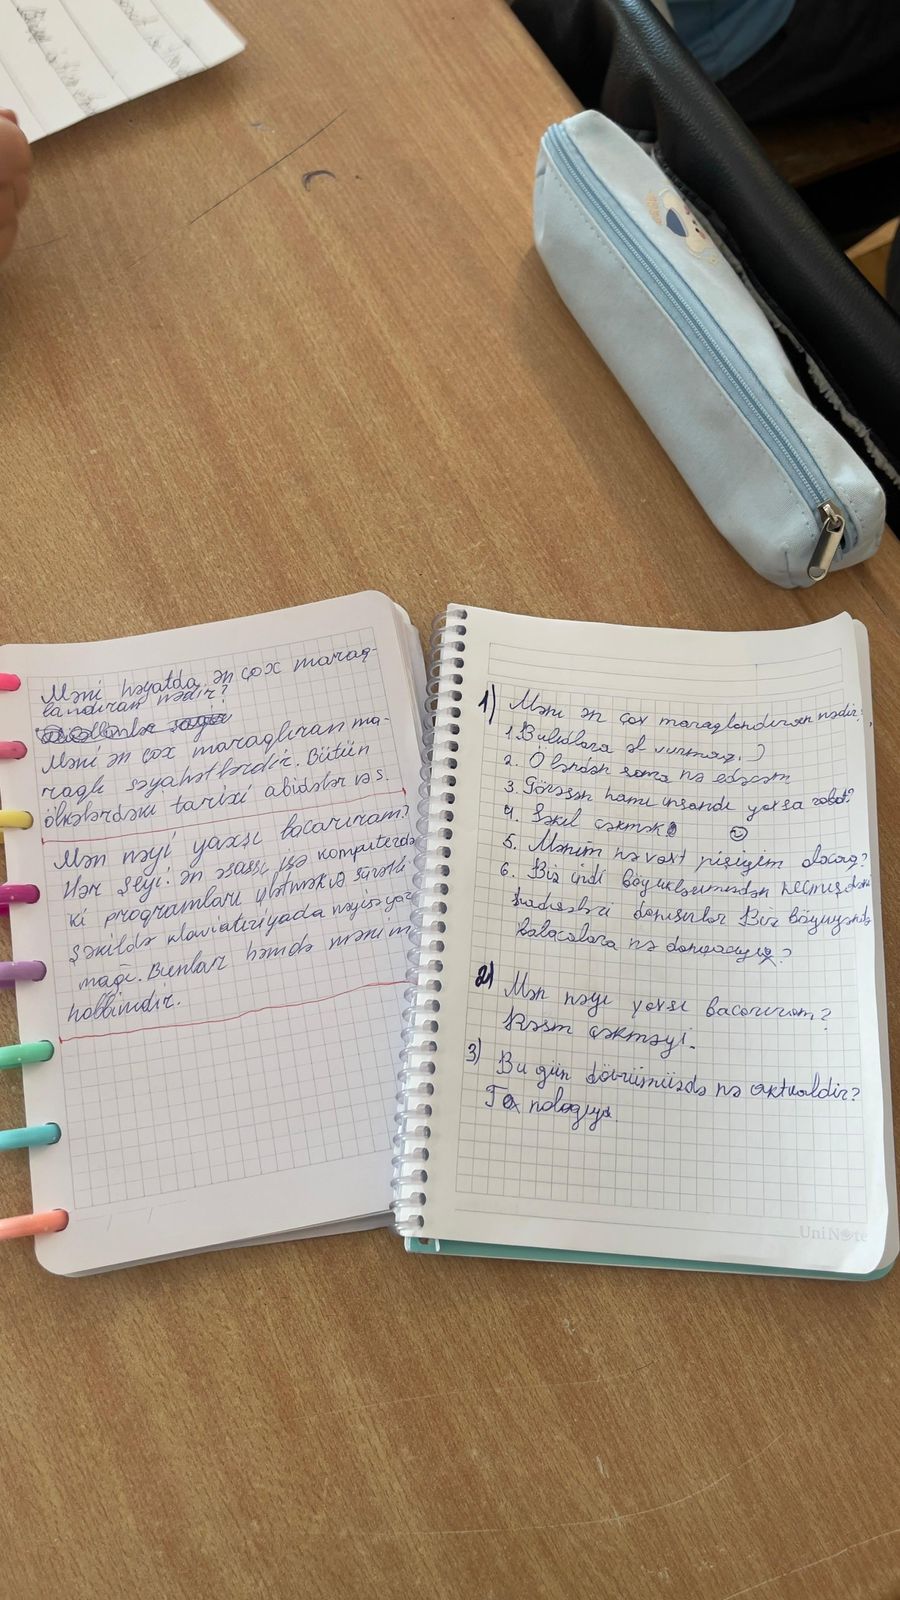 Məni həyatda ən çox maraq-
landıran nədir?
Məni ən çox maraqlıran ma-
raqlı səyahətlərdir. Bütün
ölkələrdəki tarixi abidələr və s.
Mən nəyi yaxşı bacarıram?
Hər şeyi. Ən əsası isə komputerdə
ki programları işlətmək və sürətli
şəkildə klaviaturiyada nəyisə yaz
maqı. Bunlar həmdə mənim
hobbimdir.
1) Məni ən çox maraqlandıran nədir;
1. Buludlara əl vurmaq. )
2. Öləndən sonra nə edəcəm
3. Görəsən hamı insandı yoxsa robot?
4. Şəkil çəkmək
5. Mənim nə vaxt pişiyim olacaq?
6. Biz indi böyüklərimizdən keçmişdəki
hadisələri danışırlar Biz böyüyəndə
balacalara nə danışacayıq?
2) Mən nəyi yaxşı bacarıram?
Rəsm çəkməyi.
3) Bu gün dövrümüzdə nə aktualdir?
Texnologiya
UniNote